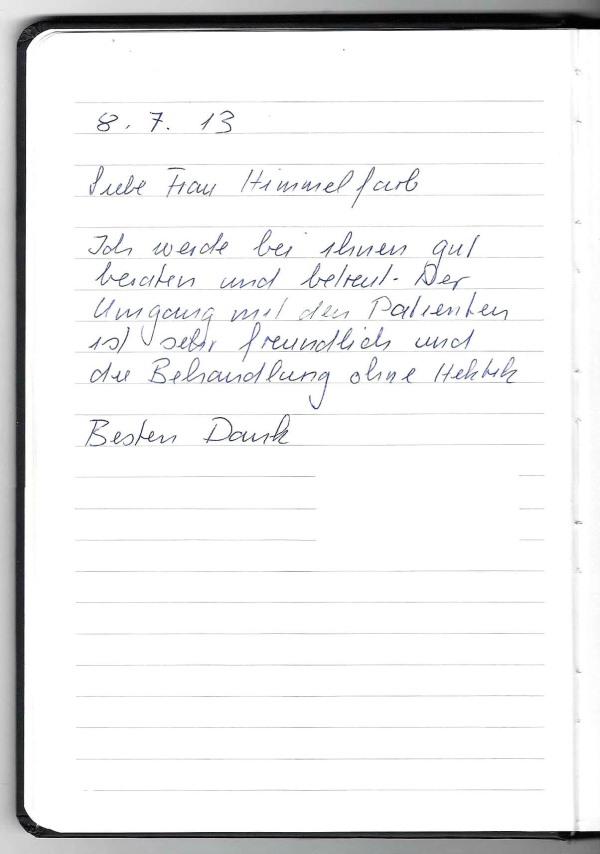 8. 7. 13
Liebe Frau Himmelfarb
Ich werde bei ihnen gut
beraten und betreut. Der
Umgang mit den Patienten
ist sehr freundlich und
die Behandlung ohne Hektik
Besten Dank